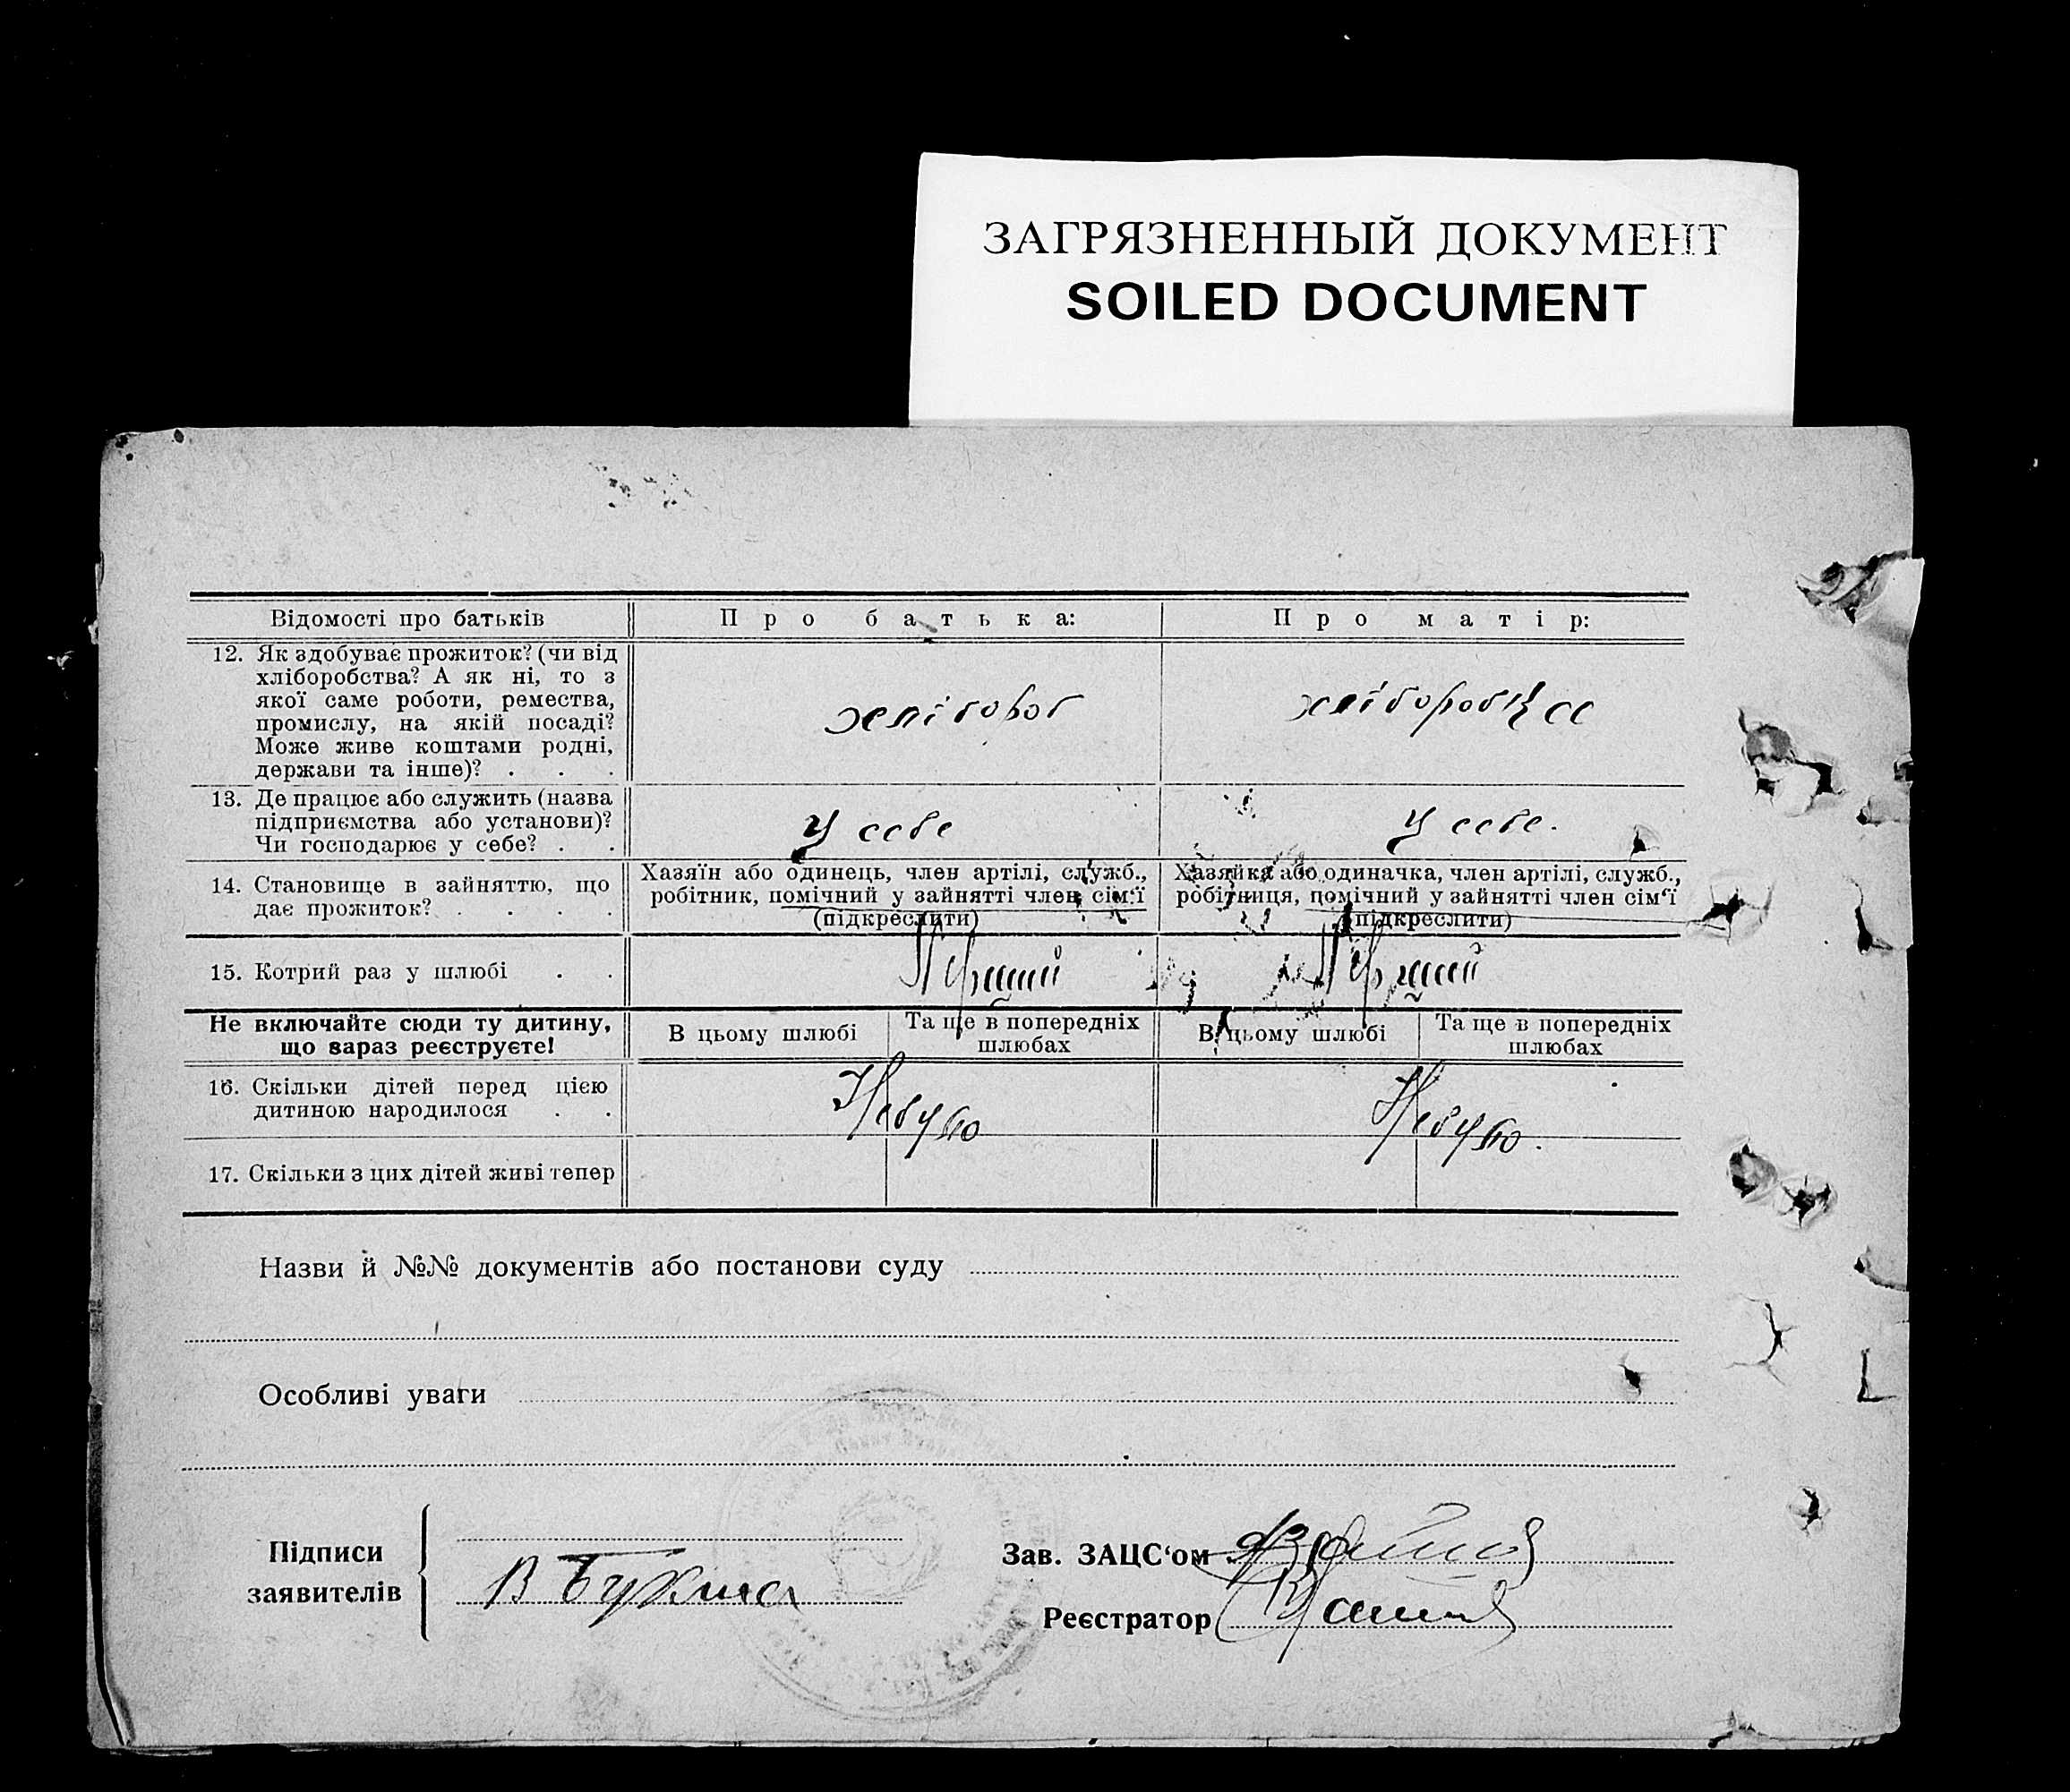 ЗАГРЯЗНЕННЫЙ ДОКУМЕНТ
SOILED DOCUMENT
Відомості про батьків
Про батька:
Про матір:
12. Як здобуває прожиток? (чи від
хліборобства? А як ні, то з
якої саме роботи, ремества,
промислу, на якій посаді?
Може живе коштами родні,
держави та інше)? . . .
хлібороб
хліборобка
13. Де працює або служить (назва
підприємства або установи)?
Чи господарює у себе? . .
У себе
У себе.
14. Становище в зайняттю, що
дає прожиток? . . . .
Хазяїн або одинець, член артілі, служб.,
робітник, помічний у зайнятті член сім‘ї
(підкреслити)
Хазяйка або одиначка, член артілі, служб.,
робітниця, помічний у зайнятті член сім‘ї
(підкреслити)
15. Котрий раз у шлюбі . .
Перший
Перший
Не включайте сюди ту дитину,
що зараз реєструєте!
В цьому шлюбі
Та ще в попередніх
шлюбах
В цьому шлюбі
Та ще в попередніх
шлюбах
16. Скільки дітей перед цією
дитиною народилося . .
Небуло
Небуло.
17. Скільки з цих дітей живі тепер
Назви й №№ документів або постанови суду
Особливі уваги
Підписи
заявителів
В Букша
Зав. ЗАЦС‘ом
Реєстратор